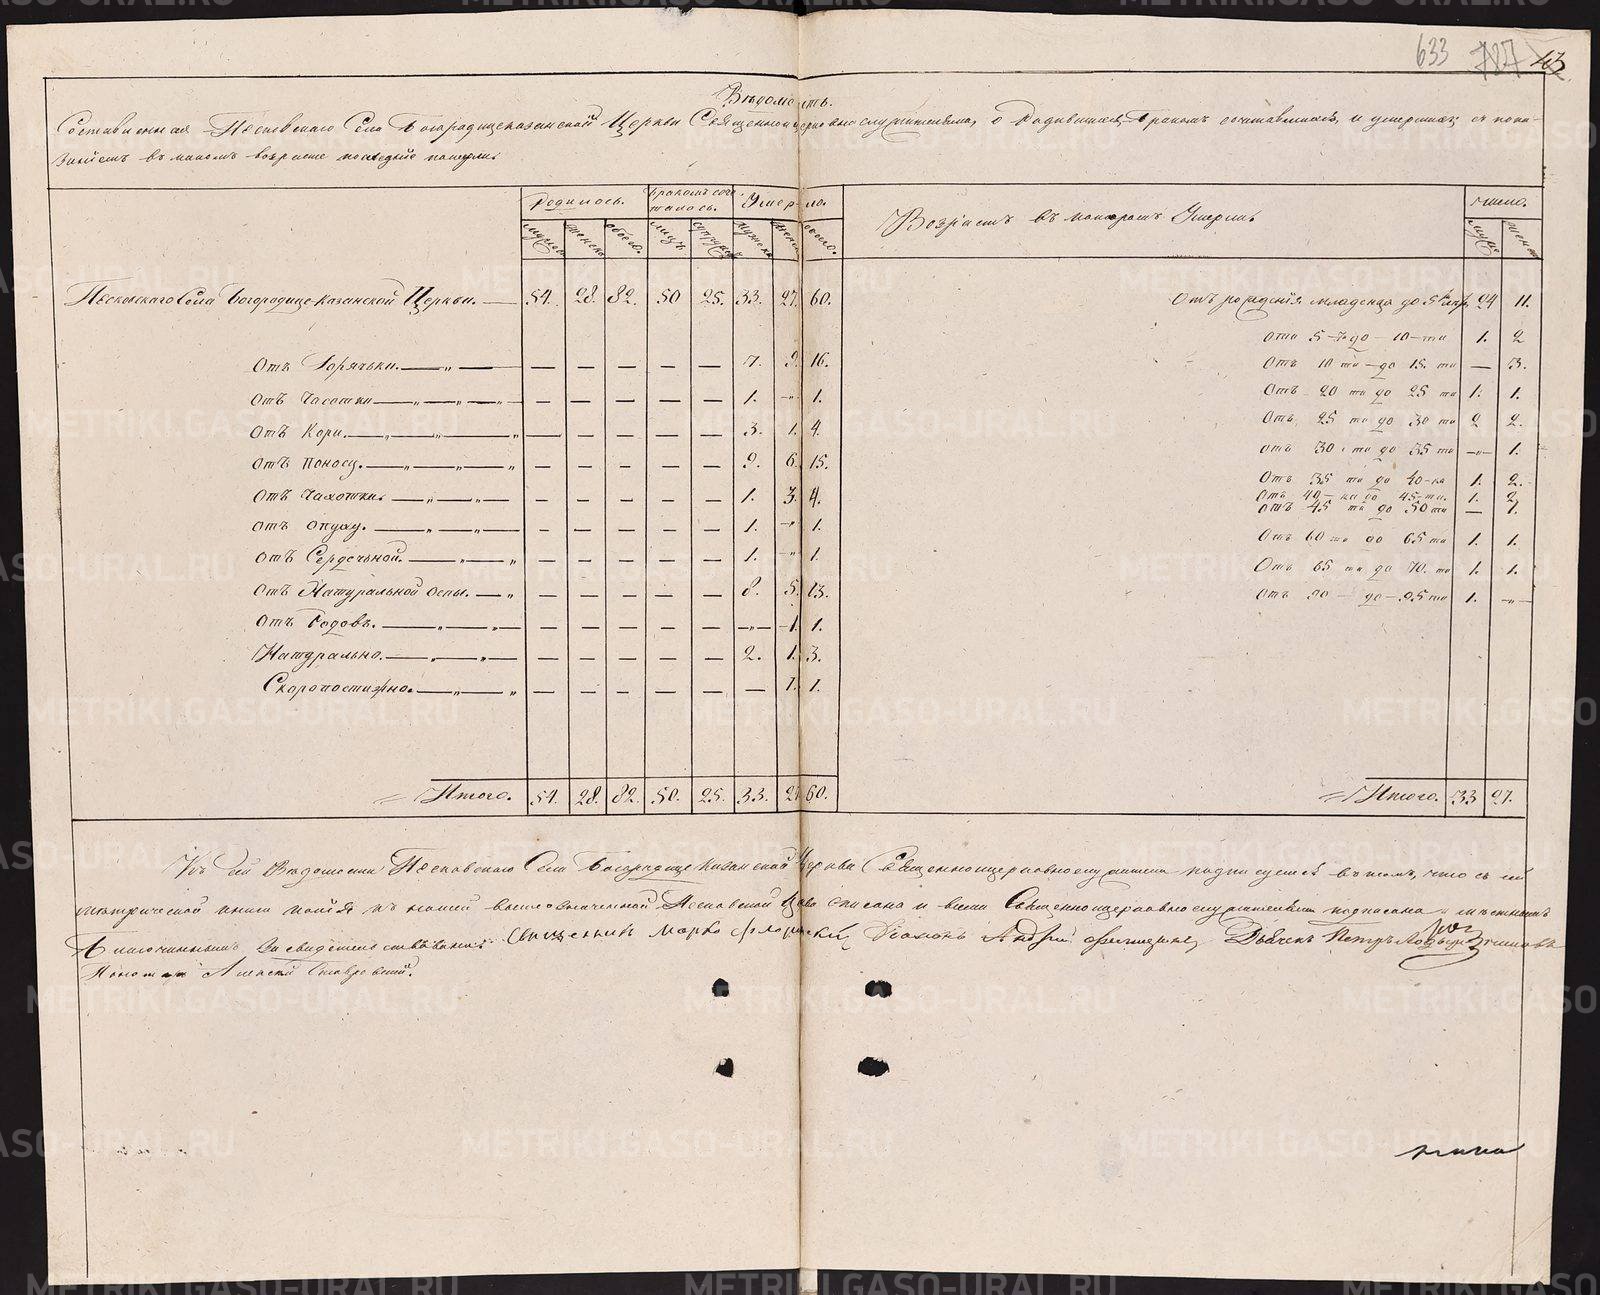 633 787 43
Вѣдомость.
Составленная Песковскаго Села Богородицеказанской Церкви Священноцерковнослужителями, о Родившихся, Бракомъ сочетавшихся, и умершихъ съ пока-
заніемъ въ какомъ возрасте последніе померли.
Родилось. Бракомъ соче-талось. Умерло. Возрастъ въ которомъ Умерли. число.
мужес. женска обоего. лицъ супружес. мужеска женс. обоего. мужес женск
Песковскаго Села Богородице-Казанской Церкви. — 54. 28. 82. 50 25. 33. 27. 60. Отъ рожденія младенца до 5 24 11.
отъ 5 до 10-ти 1. 2
Отъ Горячьки. — „ — — — — — — 7. 9. 16. Отъ 10 ти до 15. ти — 3.
Отъ Часотки — „ — „ — — — — — — 1. „ 1. Отъ 20 ти до 25 ти 1. 1.
Отъ Кори. — „ — „ — — — — — 3. 1. 4. Отъ 25 ти до 30 ти 2 2.
Отъ Поносу. — „ — „ — — — — — 9. 6. 15. Отъ 30 ти до 35 ти — „ — 1.
Отъ Чахотки. — „ — „ — — — — — 1. 3. 4. Отъ 35 ти до 40-ка 1. 2.
Отъ 40-ка до 45-ти. 1. 2.
Отъ — „ — „ — — — — — 1. „ 1. Отъ 45 ти до 50 ти — 1.
Отъ Сердечьной. — „ — — — — — 1. „ 1. Отъ 60 ти до 65 ти 1. 1.
Отъ Натуральной оспы. — „ — — — — — 8. 5. 13. Отъ 65 ти до 70. ти 1. 1.
Отъ Годовъ. — „ — „ — — — — — — „ — 1. 1. Отъ 90 — до — 95 ти 1. — „ —
Натурально. — „ — „ — — — — — 2. 1. 3.
Скоропостижно. — „ — „ — — — — — — 1. 1.
Итого. 54. 28. 82. 50. 25. 33. 27. 60. Итого. 33 27.
Къ сей Ведомости Песковскаго Села Богородице Казанской Церкви Священноцерковнослужители подписуемся въ томъ, что съ ей
метрической книги копія къ нашей вышеозначенной Песковской Цркви списана и всеми Священноцерковнослужителями подписана и местнымъ
Благочиннымъ засвидетельствована. Священникъ Марко Флоринской, Діаконъ Андрей Дьячекъ Петръ
Пономарь Алексей Ставровский.
METRIKI.GASO-URAL.RU